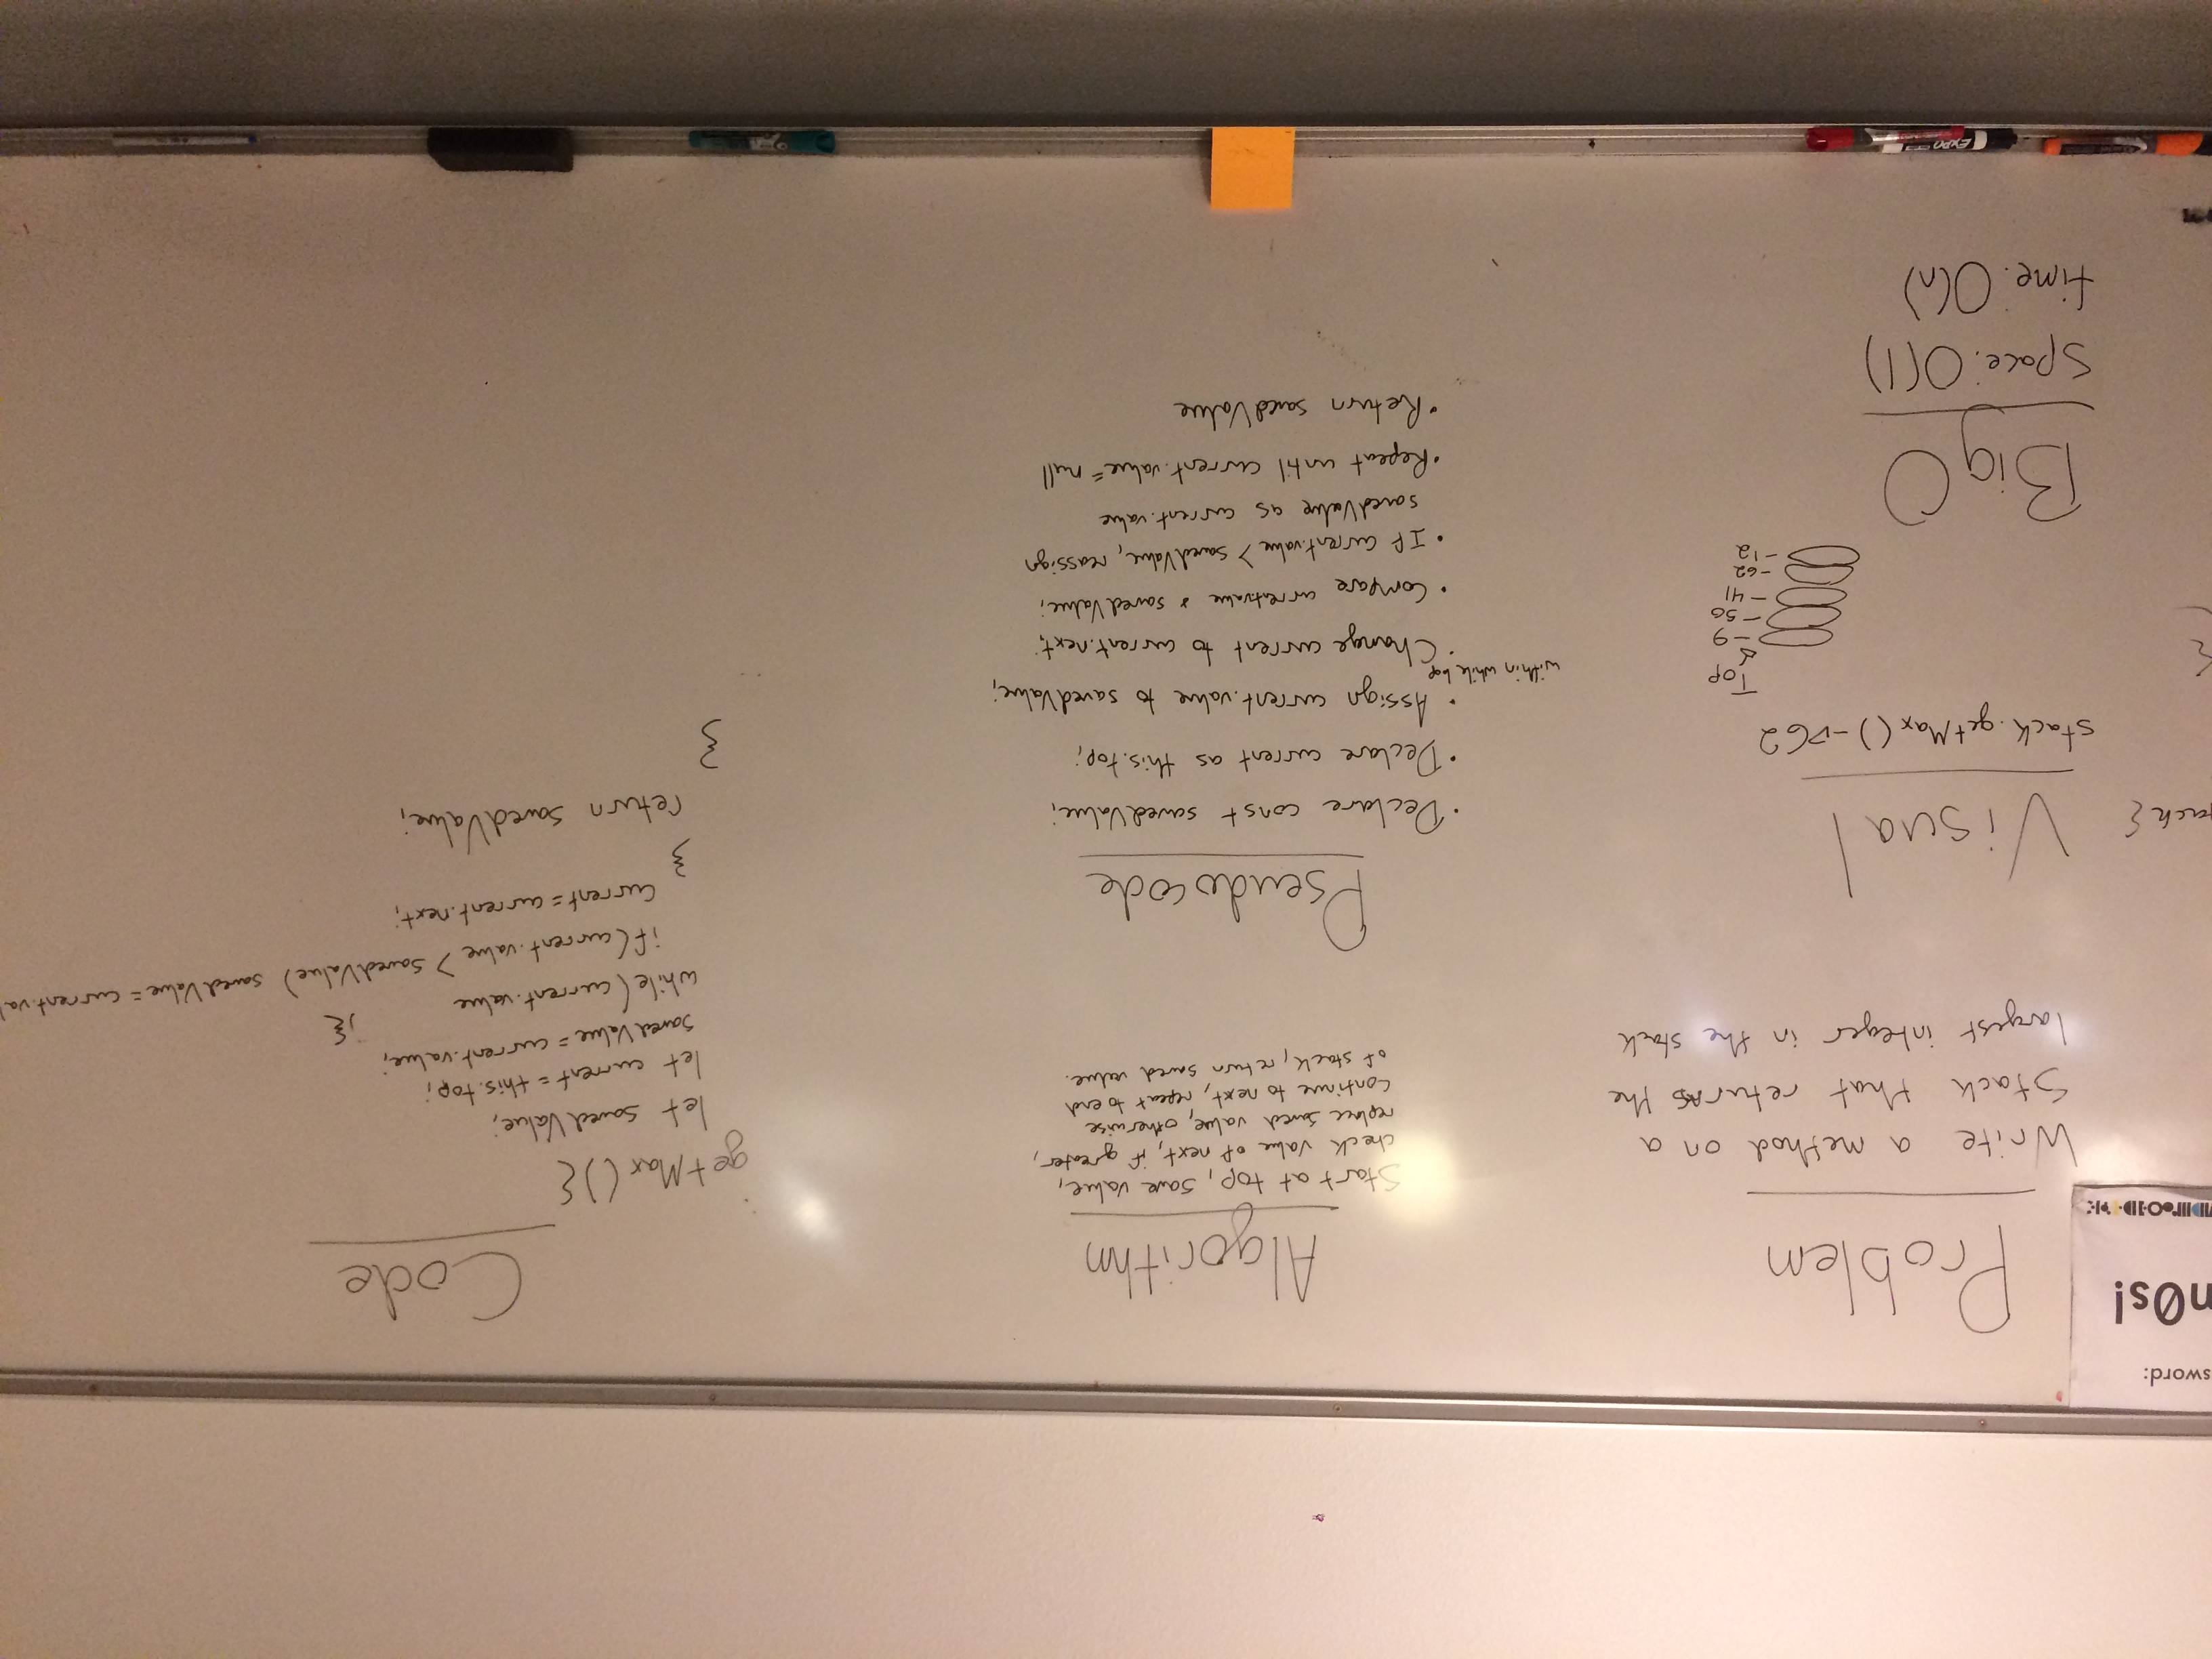 sword:
n0s!
Problem
Write a method on a
Stack that returns the
largest integer in the stack
ack {
{
Visual
stack.getMax() -> 62
Top
-9
-50
-41
-62
-12
Big O
Space: O(1)
time: O(n)
Algorithm
Start at top, save value,
check value of next, if greater,
replace saved value, otherwise
continue to next, repeat to end
of stack, return saved value.
Pseudocode
· Declare const savedValue;
· Declare current as this.top;
· Assign current.value to savedValue;
within while loop
· Change current to current.next;
· Compare current.value & savedValue;
· If current.value > savedValue, reassign
savedValue as current.value
· Repeat until current.value = null
· Return savedValue
Code
getMax(){
let savedValue;
let current = this.top;
savedValue = current.value;
while(current.value ){
if(current.value > savedValue) savedValue = current.val
current = current.next;
}
return savedValue;
}
EXPO